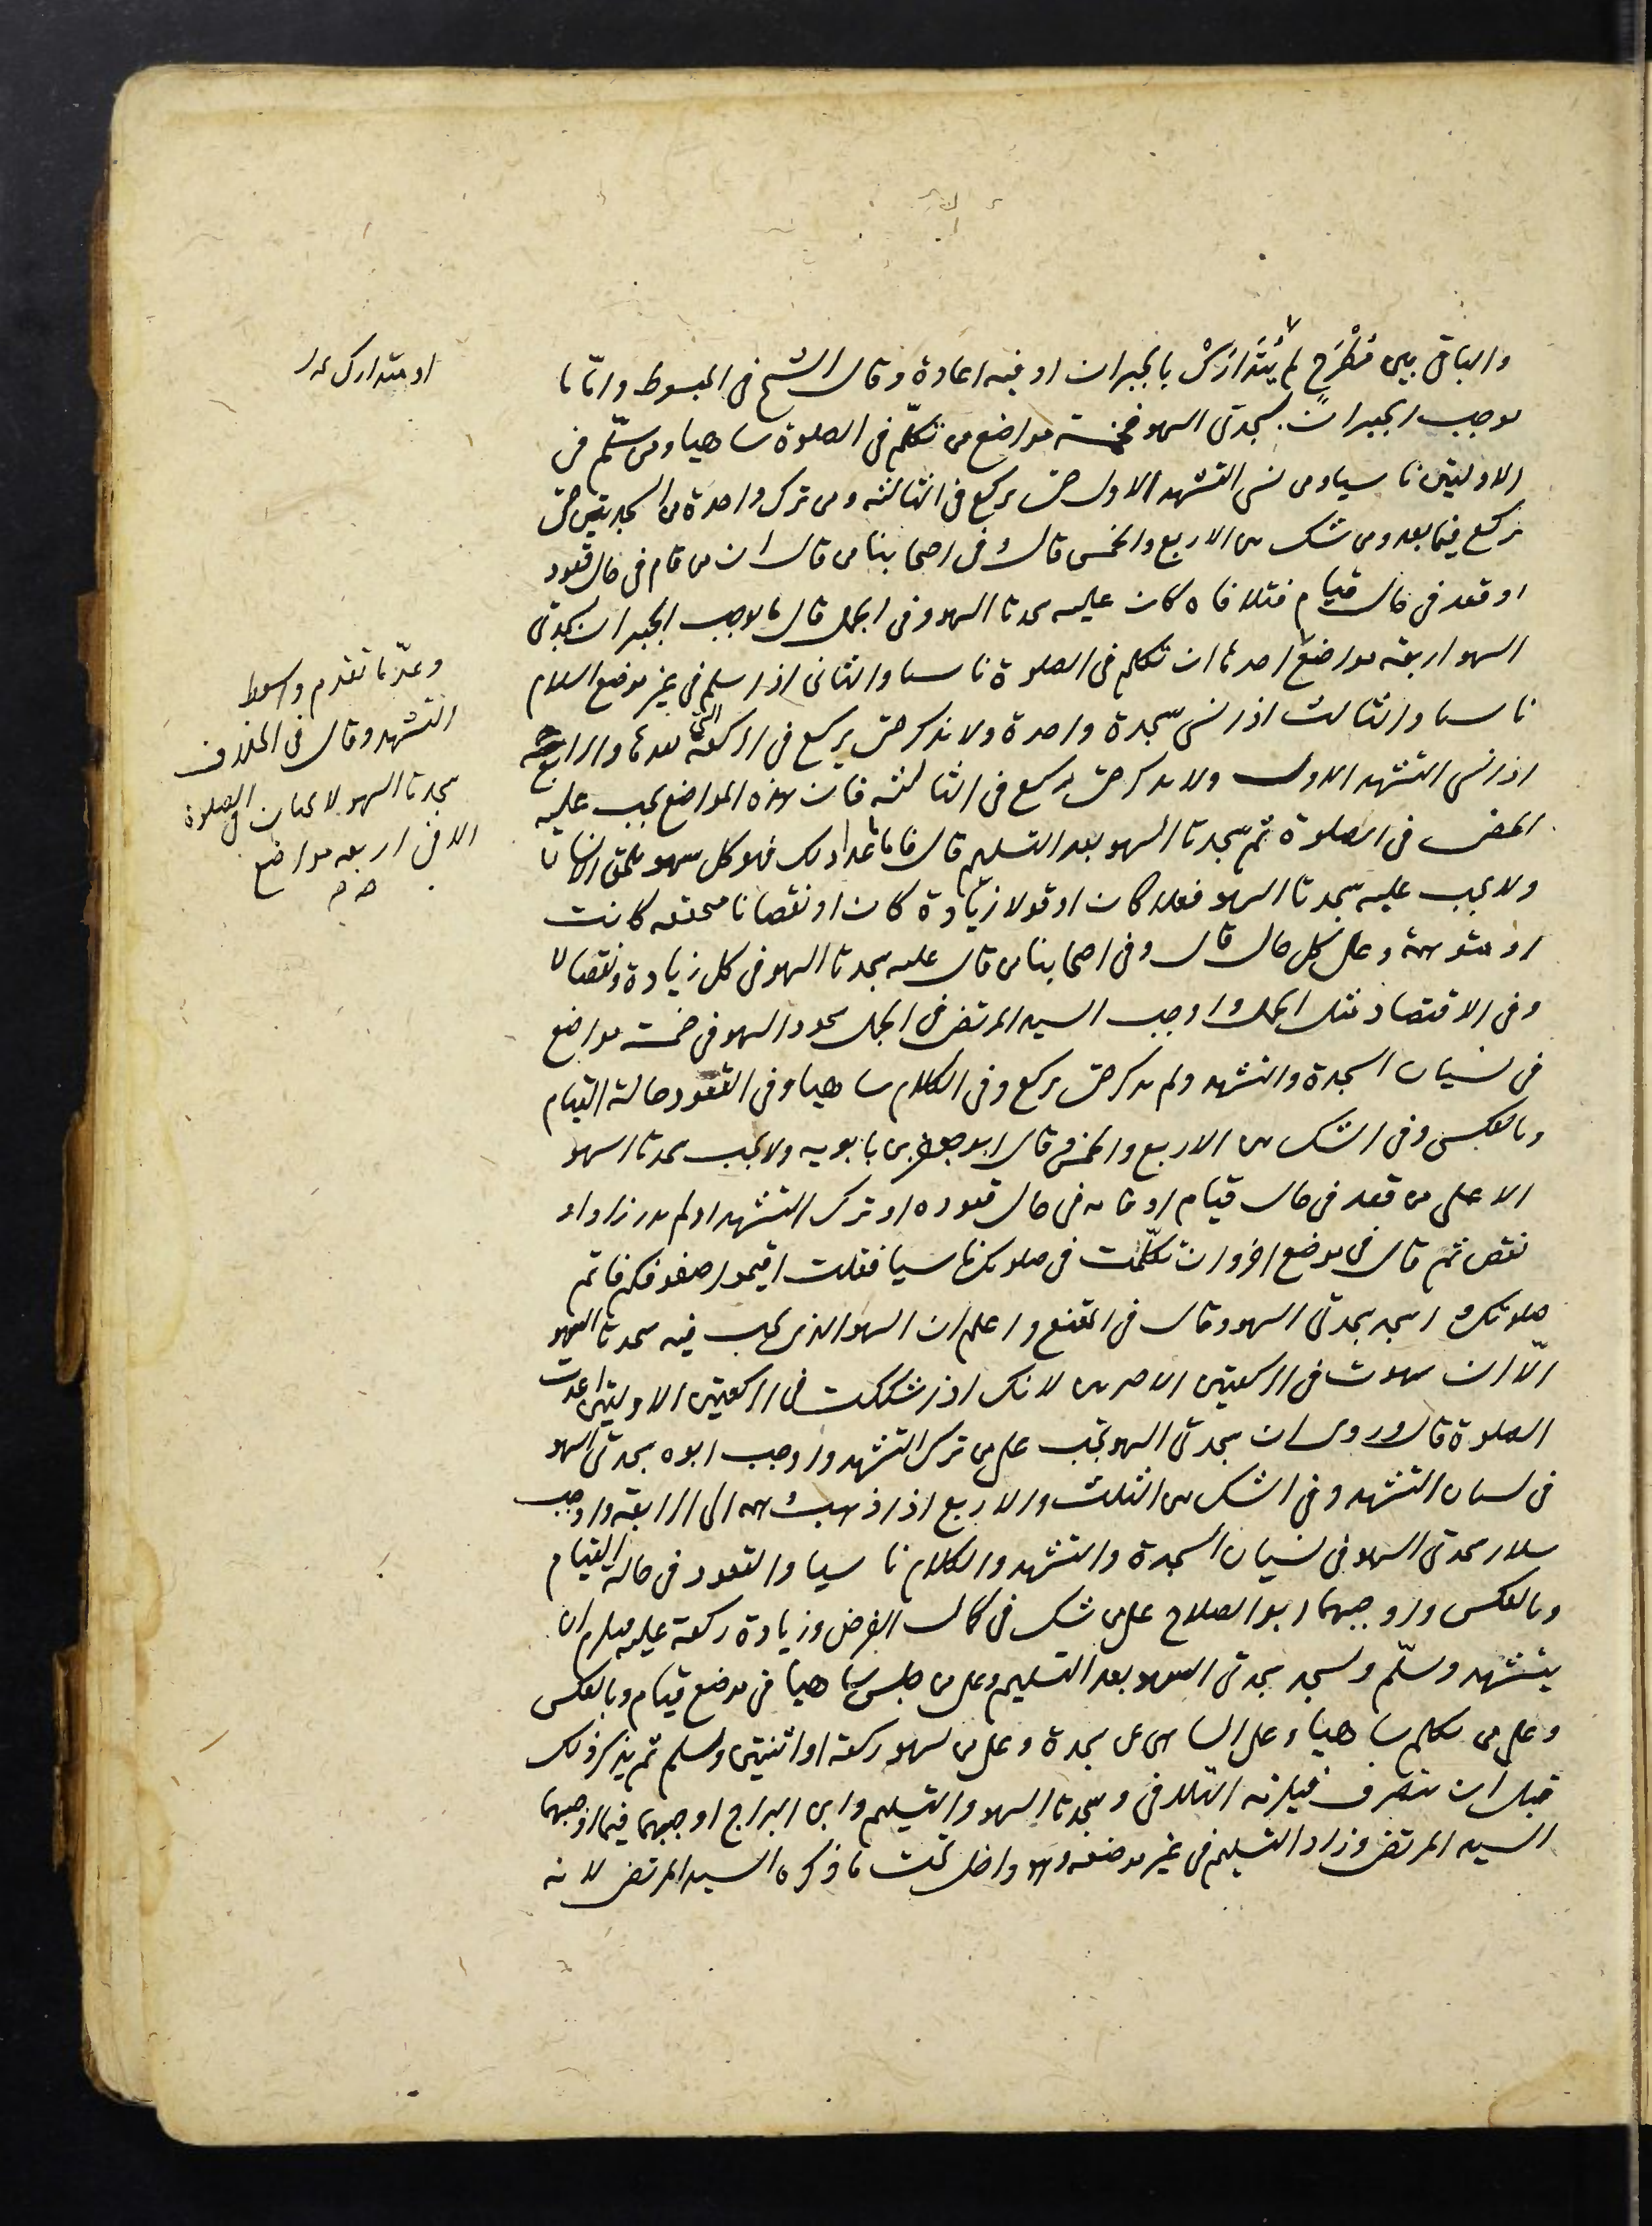 والباقي بين مُطْرَحٍ لم يُتَدَارَكْ بالجبران او فيه اعادة وقال الشيخ في المبسوط وامّا ما
يوجب الجبران بسجدتي السهو فخمسة مواضع من تكلّم في الصلوة ساهيا ومن سلّم في
الاوليين ناسيا ومن نسي التشهد الاول حتى يركع في الثالثة ومن ترك واحدة من السجدتين حتى
يركع فيما بعد ومن شك بين الاربع والخمس قال وفي اصحابنا من قال ان من قام في حال قعود
او قعد في حال قيام فتلافاه كان عليه سجدتا السهو وفي الجمل قال ما يوجب الجبران بسجدتي
السهو اربعة مواضع احدها ان تكلم في الصلوة ناسيا والثاني اذا سلم في غير موضع السلام
ناسيا والثالث اذا نسي سجدة واحدة ولا يذكر حتى يركع في الركعة التي بعدها والرابع
اذا نسي التشهد الاول ولا يذكر حتى يركع في الثالثة فان هذه المواضع يجب عليه
المضي في الصلوة ثم سجدتا السهو بعد التسليم قال فاما ما عدا ذلك فهو كل سهو يلحق الانسان
ولا يجب عليه سجدتا السهو فعلا كان او قولا زيادة كان او نقصانا متحققه كانت
او متوهمة وعلى كل حال قال وفي اصحابنا من قال عليه سجدتا السهو في كل زيادة ونقصان
وفي الاقتصاد مثل الجمل واوجب السيد المرتضى في الجمل سجود السهو في خمسة مواضع
في نسيان السجدة والتشهد ولم يذكر حتى يركع وفي الكلام ساهيا وفي القعود حالة القيام
وبالعكس وفي الشك بين الاربع والخمس وقال ابو جعفر بن بابويه ولا يجب سجدتا السهو
الا على من قعد في حال قيام او قام في حال قعوده او ترك التشهد او لم يدر زاد او
نقص ثم قال في موضع اخر وان تكلّمت في صلوتك ناسيا فقلت اقيموا صفوفكم فاتم
صلوتك واسجد سجدتي السهو وقال في المقنع واعلم ان السهو الذي يجب فيه سجدتا السهو
الّا ان سهوت في الركعتين الاخيرتين لانك اذا شككت في الركعتين الاوليين اعدت
الصلوة قال وروى ان سجدتي السهو تجب على من ترك التشهد واوجب ابوه سجدتي السهو
في نسيان التشهد وفي الشك بين الثلث والاربع اذا ذهب وهمه الى الرابعة واوجب
سلار سجدتي السهو في نسيان السجدة والتشهد والكلام ناسيا والقعود في حالة القيام
وبالعكس واوجبهما ابو الصلاح على من شك في كمال الفرض وزيادة ركعة عليه فيلزم ان
يتشهد وسلّم ويسجد سجدتي السهو بعد التسليم وعلى من جلس ساهيا في موضع قيام وبالعكس
وعلى من تكلم ساهيا وعلى الساهي عن سجدة وعلى من يسهو ركعة او اثنتين ويسلم ثم يذكر ذلك
قبل ان ينصرف فيلزمه التلافي وسجدتا السهو والتسليم وابن البراج اوجبهما فيما اوجبهما
السيد المرتضى وزاد التسليم في غير موضعه وهو داخل تحت ما ذكره السيد المرتضى لانه
او متدارك
وعدّ ما تقدم واسقط
التشهد وقال في الخلاف
سجدتا السهو لا يجبان في الصلوة
الا في اربعه مواضع